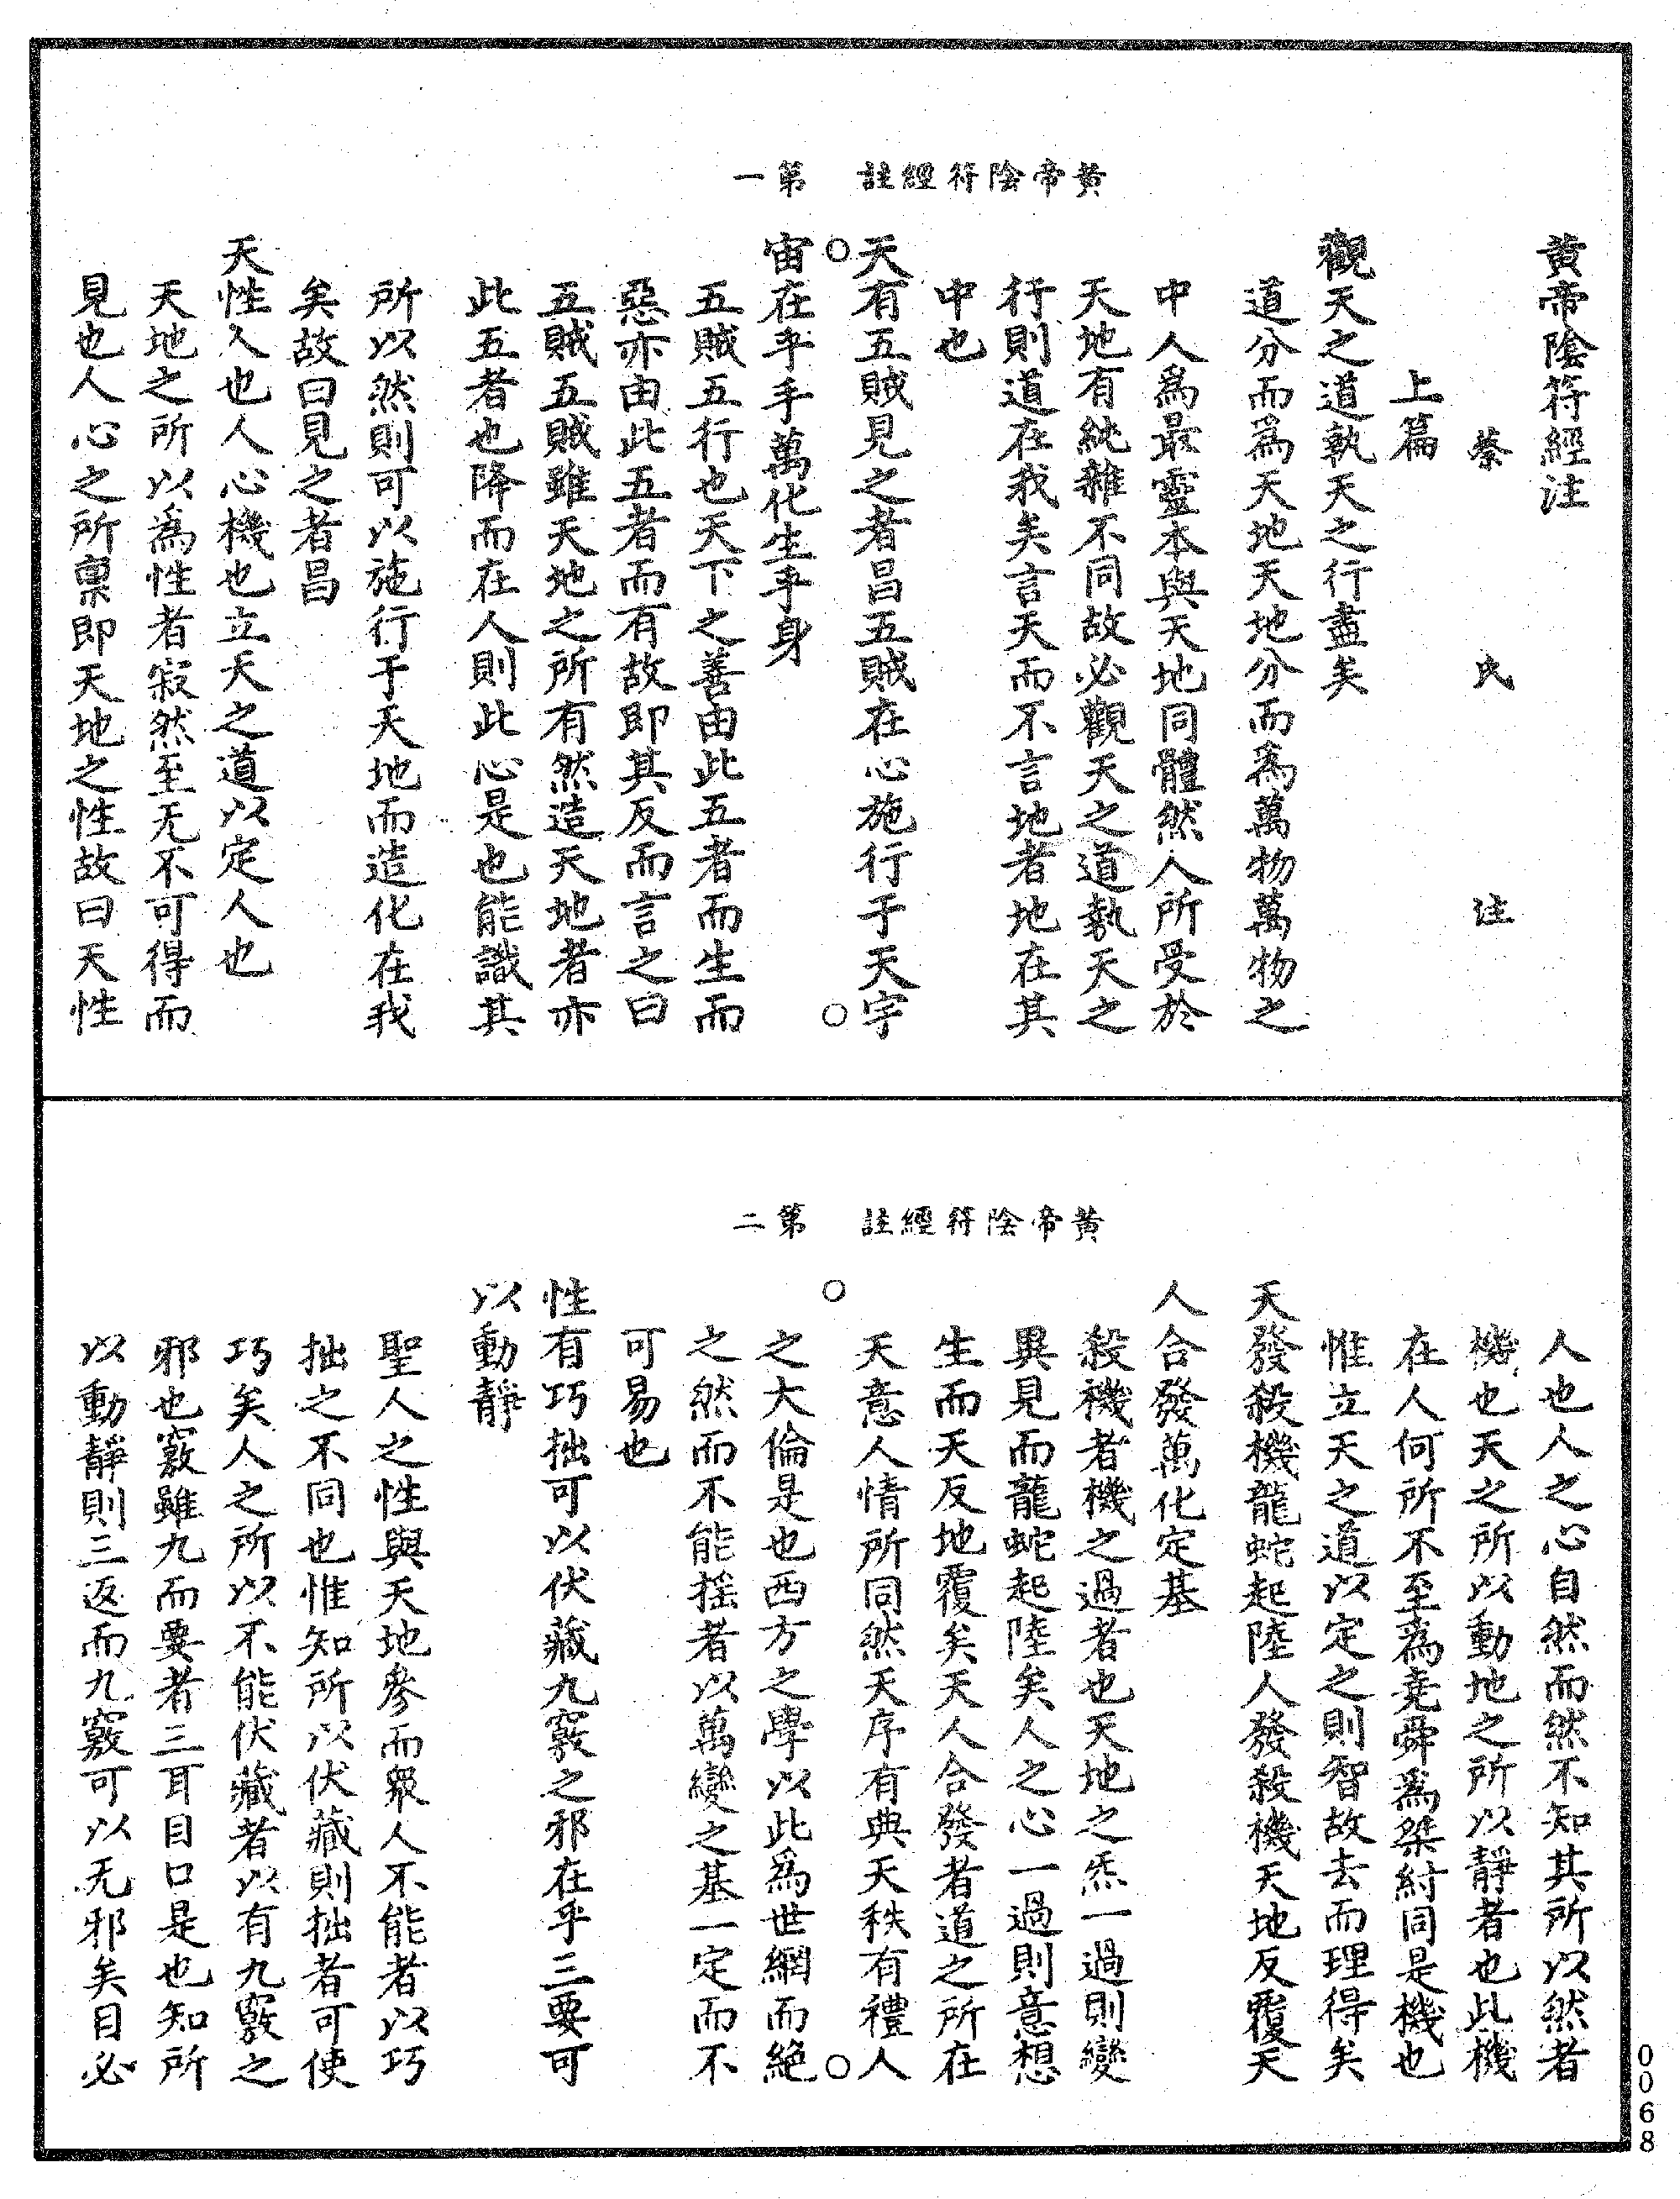 黃帝陰符經註　第一
黃帝陰符經注
蔡氏注
上篇
觀天之道執天之行盡矣
道分而爲天地天地分而爲萬物萬物之
中人爲最靈本與天地同體然人所受於
天地有純雜不同故必觀天之道執天之
行則道在我矣言天而不言地者地在其
中也
天有五賊見之者昌五賊在心施行于天宇
宙在乎手萬化生乎身
五賊五行也天下之善由此五者而生而
惡亦由此五者而有故即其反而言之曰
五賊五賊雖天地之所有然造天地者亦
此五者也降而在人則此心是也能識其
所以然則可以施行于天地而造化在我
矣故曰見之者昌
天性人也人心機也立天之道以定人也
天地之所以爲性者寂然至无不可得而
見也人心之所稟即天地之性故曰天性
黃帝陰符經註　第二
人也人之心自然而然不知其所以然者
機也天之所以動地之所以靜者也此機
在人何所不至爲堯舜爲桀紂同是機也
惟立天之道以定之則智故去而理得矣
天發殺機龍蛇起陸人發殺機天地反覆天
人合發萬化定基
殺機者機之過者也天地之炁一過則變
異見而龍蛇起陸矣人之心一過則意想
生而天反地覆矣天人合發者道之所在
天意人情所同然天序有典天秩有禮人
之大倫是也西方之學以此爲世網而絕
之然而不能搖者以萬變之基一定而不
可易也
性有巧拙可以伏藏九竅之邪在乎三要可
以動靜
聖人之性與天地參而眾人不能者以巧
拙之不同也惟知所以伏藏則拙者可使
巧矣人之所以不能伏藏者以有九竅之
邪也竅雖九而要者三耳目口是也知所
以動靜則三返而九竅可以无邪矣目必
0068